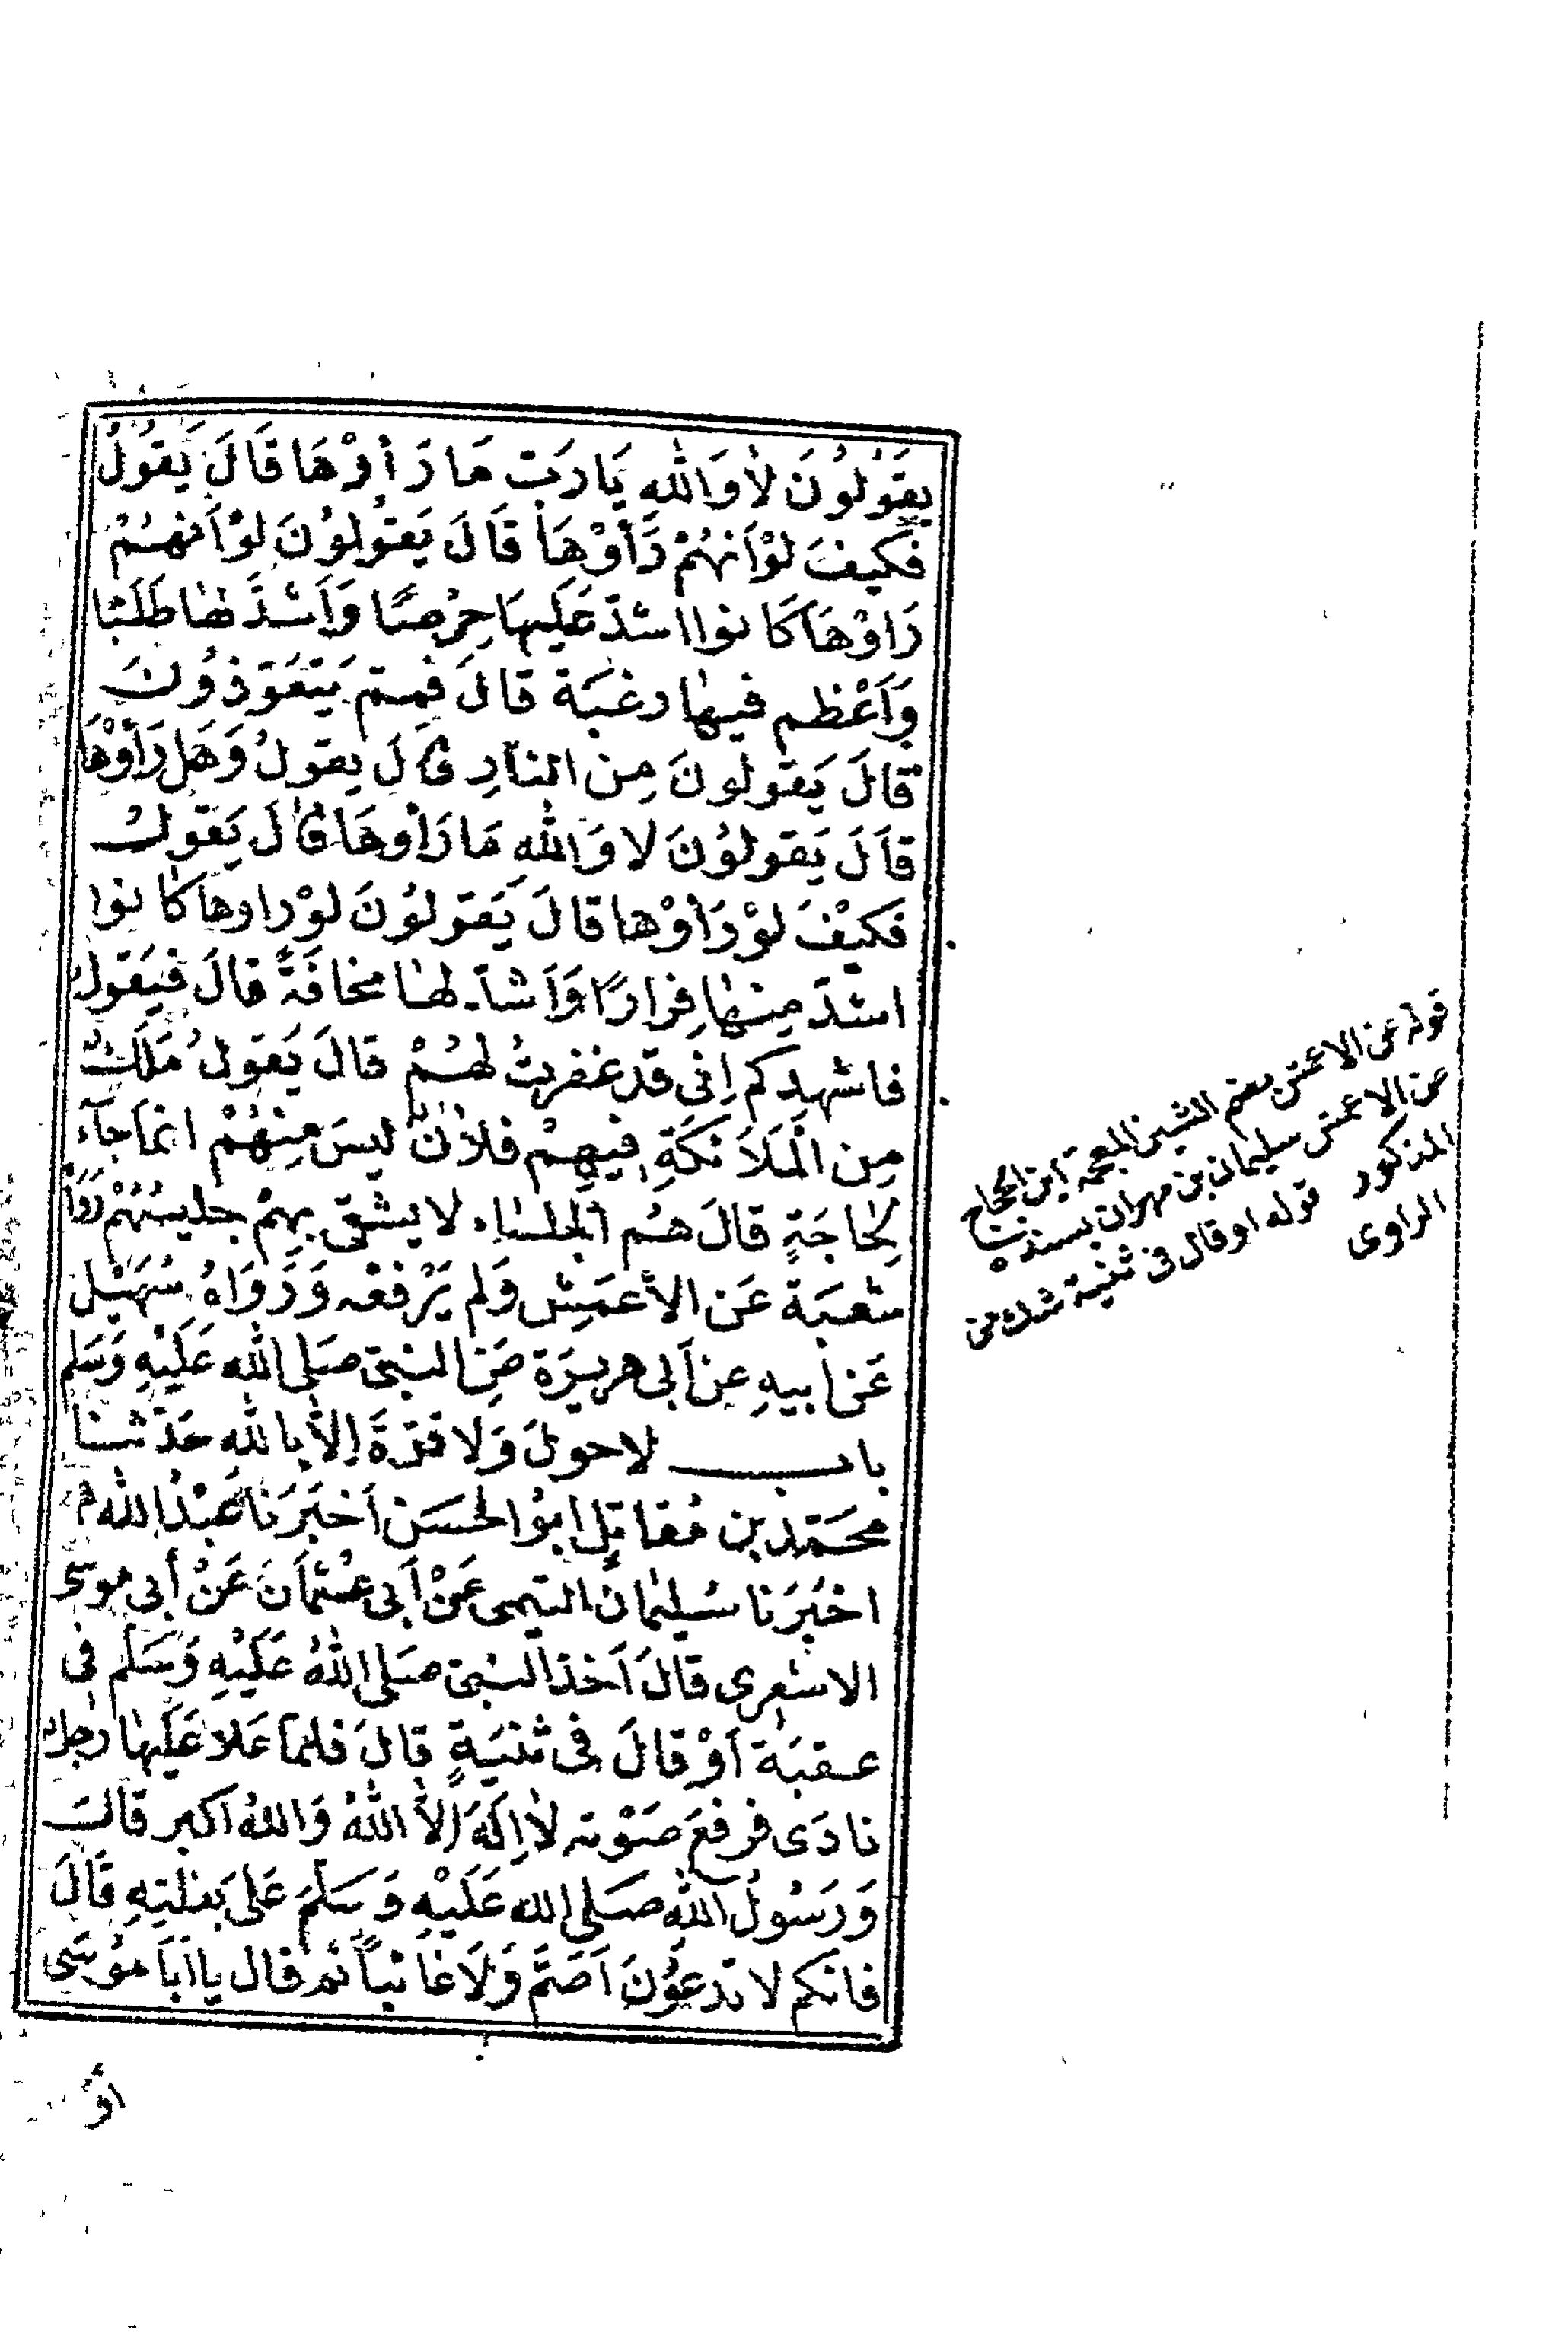 يَقُولُونَ لَا وَاللهِ يَا رَبِّ مَا رَأَوْهَا قَالَ يَقُولُ
فَكَيْفَ لَوْ أَنَّهُمْ رَأَوْهَا قَالَ يَقُولُونَ لَوْ أَنَّهُمْ
رَاوْهَا كَانوا اشدّ عَلَيهَا حِرْصًا وَأَشَدَّ لها طَلَبًا
وَأَعْظم فيها رغبَة قالَ فمِمّ يَتَعَوّذُونَ
قالَ يَقولونَ مِن النارِ قالَ يقولُ وَهَل رَأَوْهَا
قالَ يَقولوُنَ لا وَاللهِ مَا رَأوهَا قالَ يَقولُ
فَكيْفَ لوْ رَأوْها قالَ يَقولوُنَ لوْ راوها كانوا
اشدّ مِنها فِرارًا وَأَشدّ لها مخافَةً قالَ فيَقولُ
فاشهدكم إنى قد غفرتُ لهُمْ قالَ يَقولُ مَلَكٌ
مِن الْمَلَائكَةِ فيهِمْ فلانٌ ليسَ مِنهُمْ انما جآءَ
لِحاجَةٍ قالَ هُم الجلسَاء لا يشقى بِهِمْ جليسُهُمْ رَوَاهُ
شعبَة عَن الأعمَشِ وَلم يَرْفعْه وَرَوَاهُ سُهَيْل
عَن ابيهِ عن أبى هريرَة عَن النبىّ صَلى الله عَلَيْهِ وَسَلم
باب لا حولَ وَلا قوّةَ إلا بالله حَدّثنا
محَمّد بن مُقاتِل ابوُ الحسَن أخبَرَنا عَبْدُ الله
اخبَرَنا سُليمَانُ التيمى عَنْ أبى عُثمَانَ عَنْ أبى موسى
الاشعرى قالَ أخذ النبىّ صَلى اللهُ عَلَيْهِ وَسَلم فى
عقبَة أوْ قالَ فى ثنيَةٍ قالَ فلمّا عَلا عَلَيها رجل
نادَى فرفعَ صَوْته لا اِلَهَ إلا اللهُ وَاللهُ اكبر قالَ
وَرَسُولُ اللهِ صَلى الله عَلَيْهِ وَسَلمَ عَلى بَغلتِهِ قَالَ
فانكم لا تدعوُنَ أصَمَّ وَلَا غائبًا ثم قال يا أبَا موُسَى
أوْ
قوله عن الاعمش بضم الشين المعجمة ابن الحجاج
عن الاعمش سليمان بن مهران بسنده
المذكور قوله او قال فى ثنية شك من
الراوى